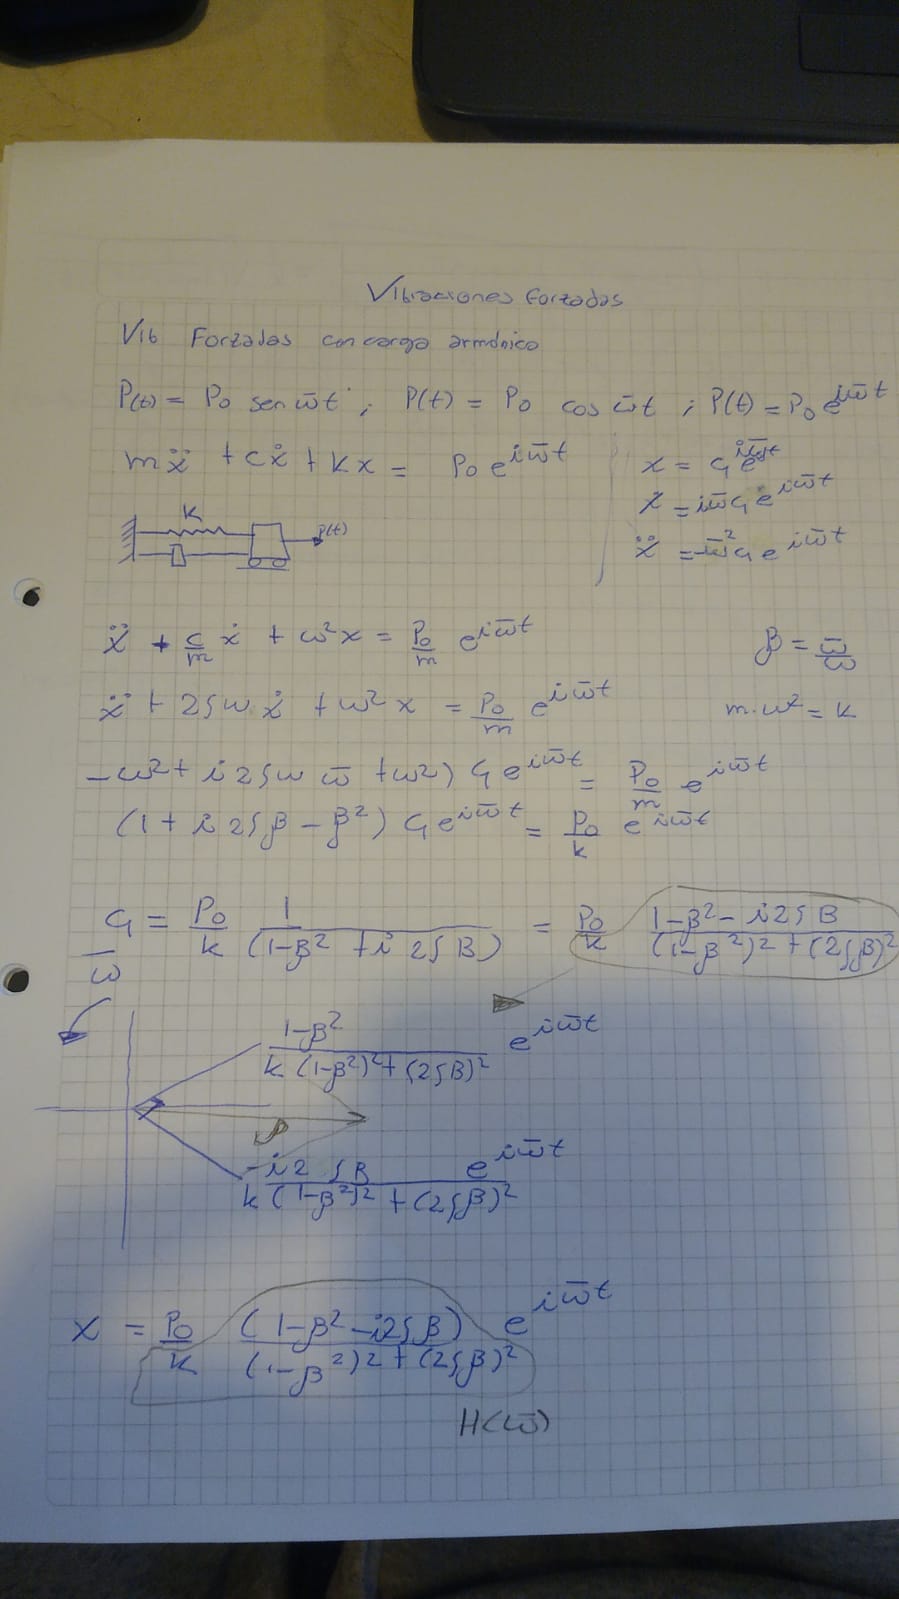 Vibraciones Forzadas
Vib Forzadas con carga armónica
P(t) = P0 sen ω̄t ; P(t) = P0 cos ω̄t ; P(t) = P0 e^{iω̄t}
mẍ + cẋ + kx = P0 e^{iω̄t}
x = G e^{iω̄t}
ẋ = iω̄G e^{iω̄t}
ẍ = -ω̄²G e^{iω̄t}
K
P(t)
ẍ + c/m ẋ + ω²x = P0/m e^{iω̄t}
β = ω̄/ω
ẍ + 2ζω ẋ + ω²x = P0/m e^{iω̄t}
m·ω² = k
-ω² + i2ζω ω̄ + ω²) G e^{iω̄t} = P0/m e^{iω̄t}
(1 + i2ζβ - β²) G e^{iω̄t} = P0/k e^{iω̄t}
G = P0/k 1/(1-β² + i2ζβ) = P0/k (1-β² - i2ζβ)/((1-β²)² + (2ζβ)²)
ω̄
(1-β²)/(k(1-β²)² + (2ζβ)²) e^{iω̄t}
(-i2ζβ)/(k(1-β²)² + (2ζβ)²) e^{iω̄t}
x = P0/k (1-β²-i2ζβ)/((1-β²)² + (2ζβ)²) e^{iω̄t}
H(ω̄)